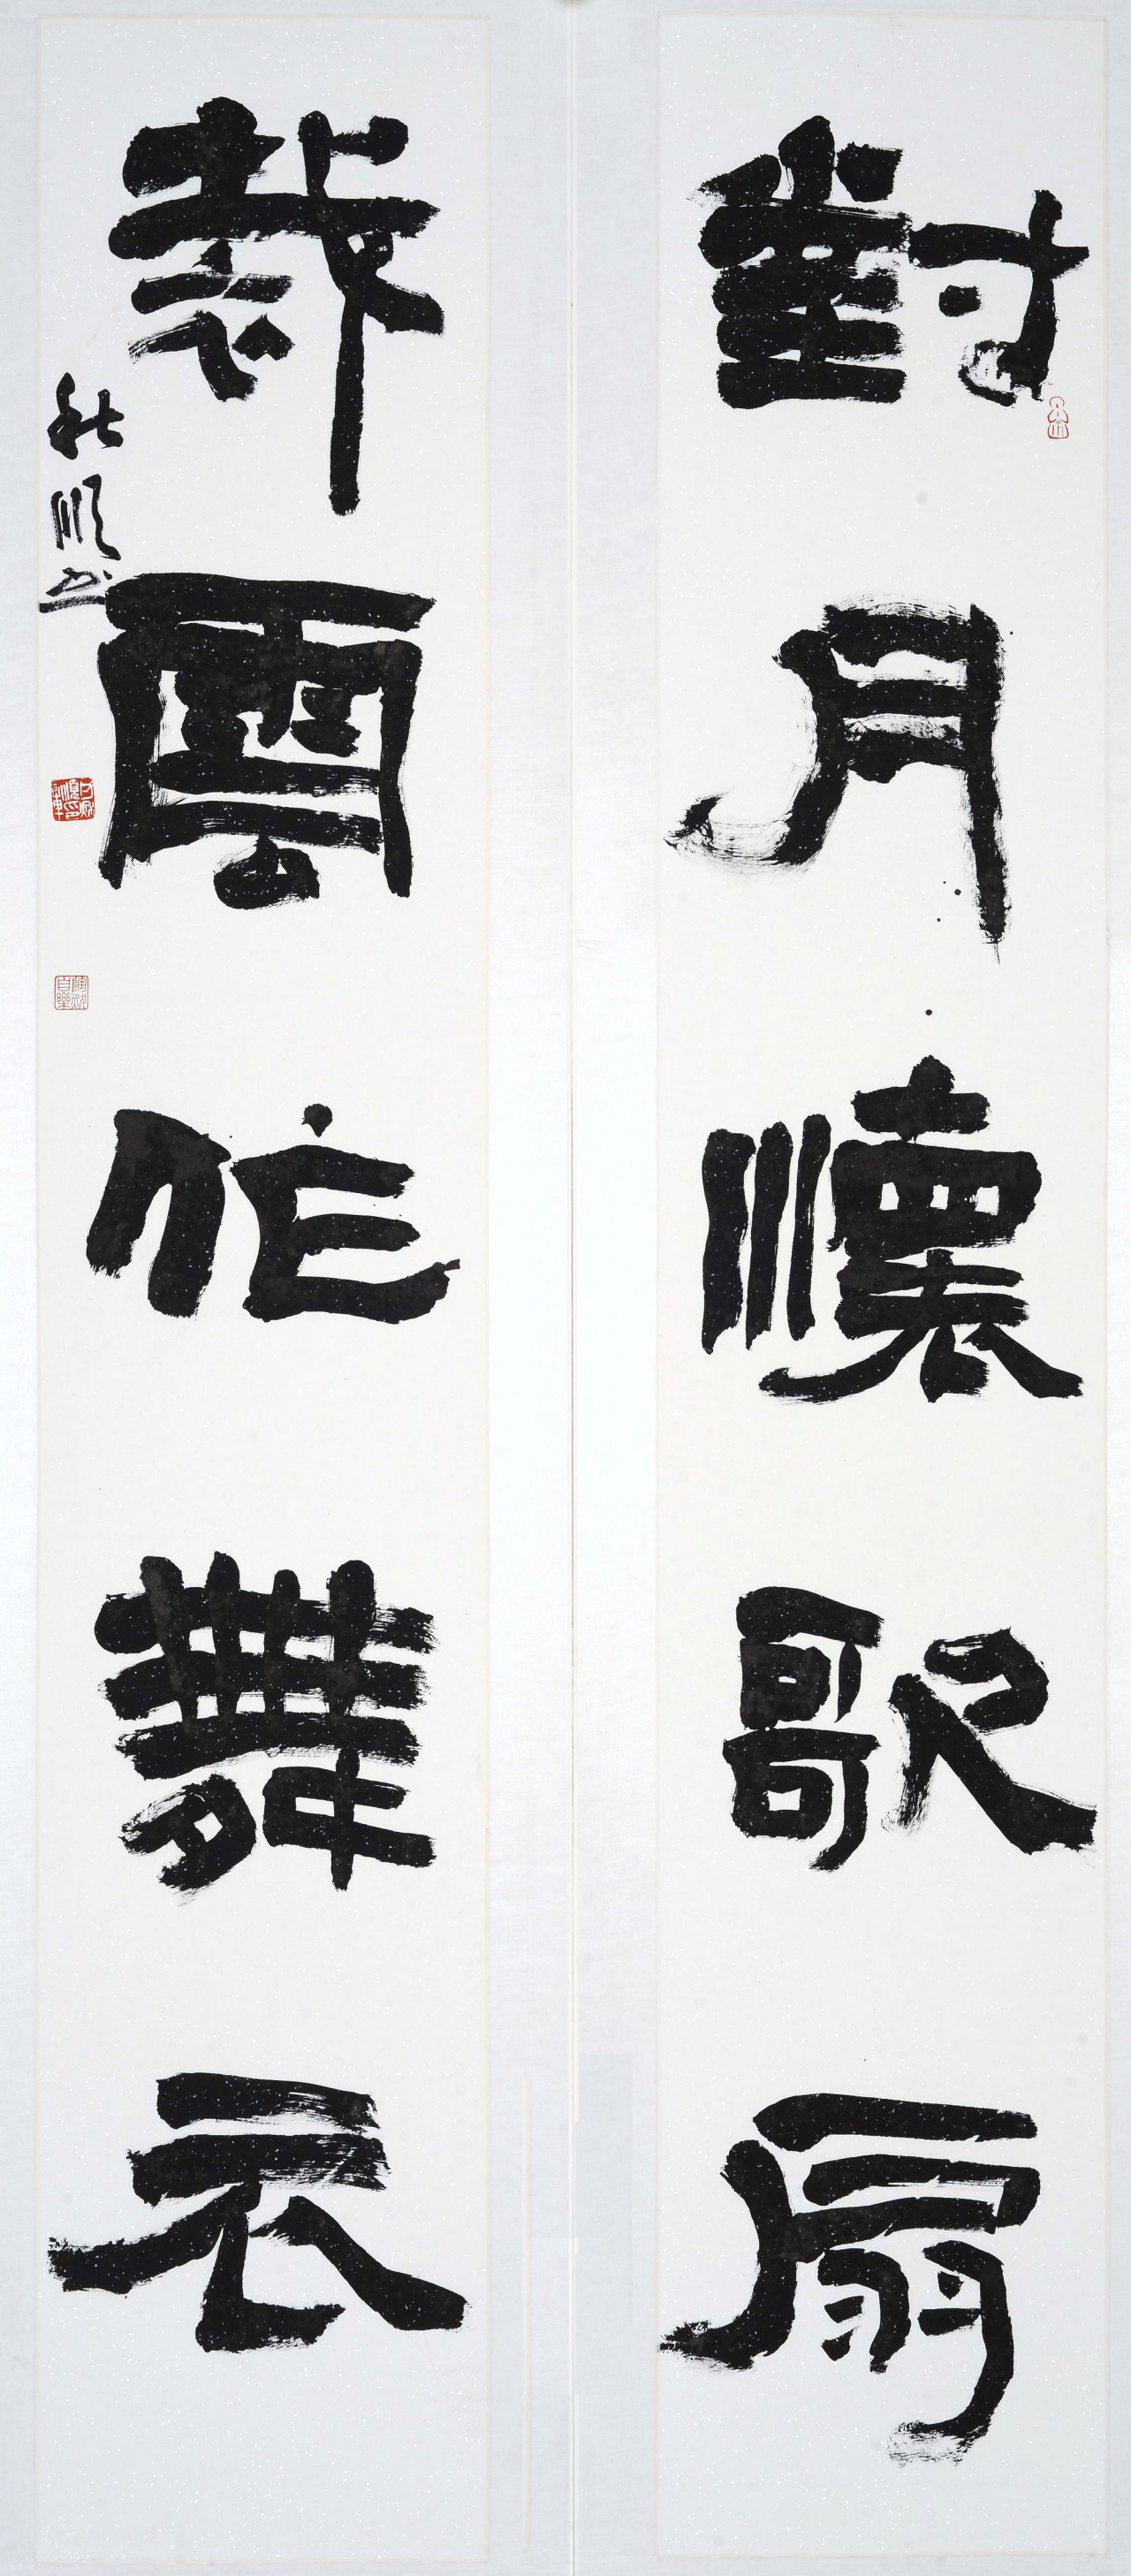 對月懷歌扇
裁雲作舞衣
秋順書